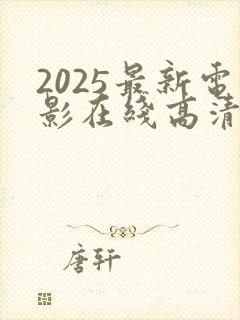 2025最新电
影在线高清
唐轩